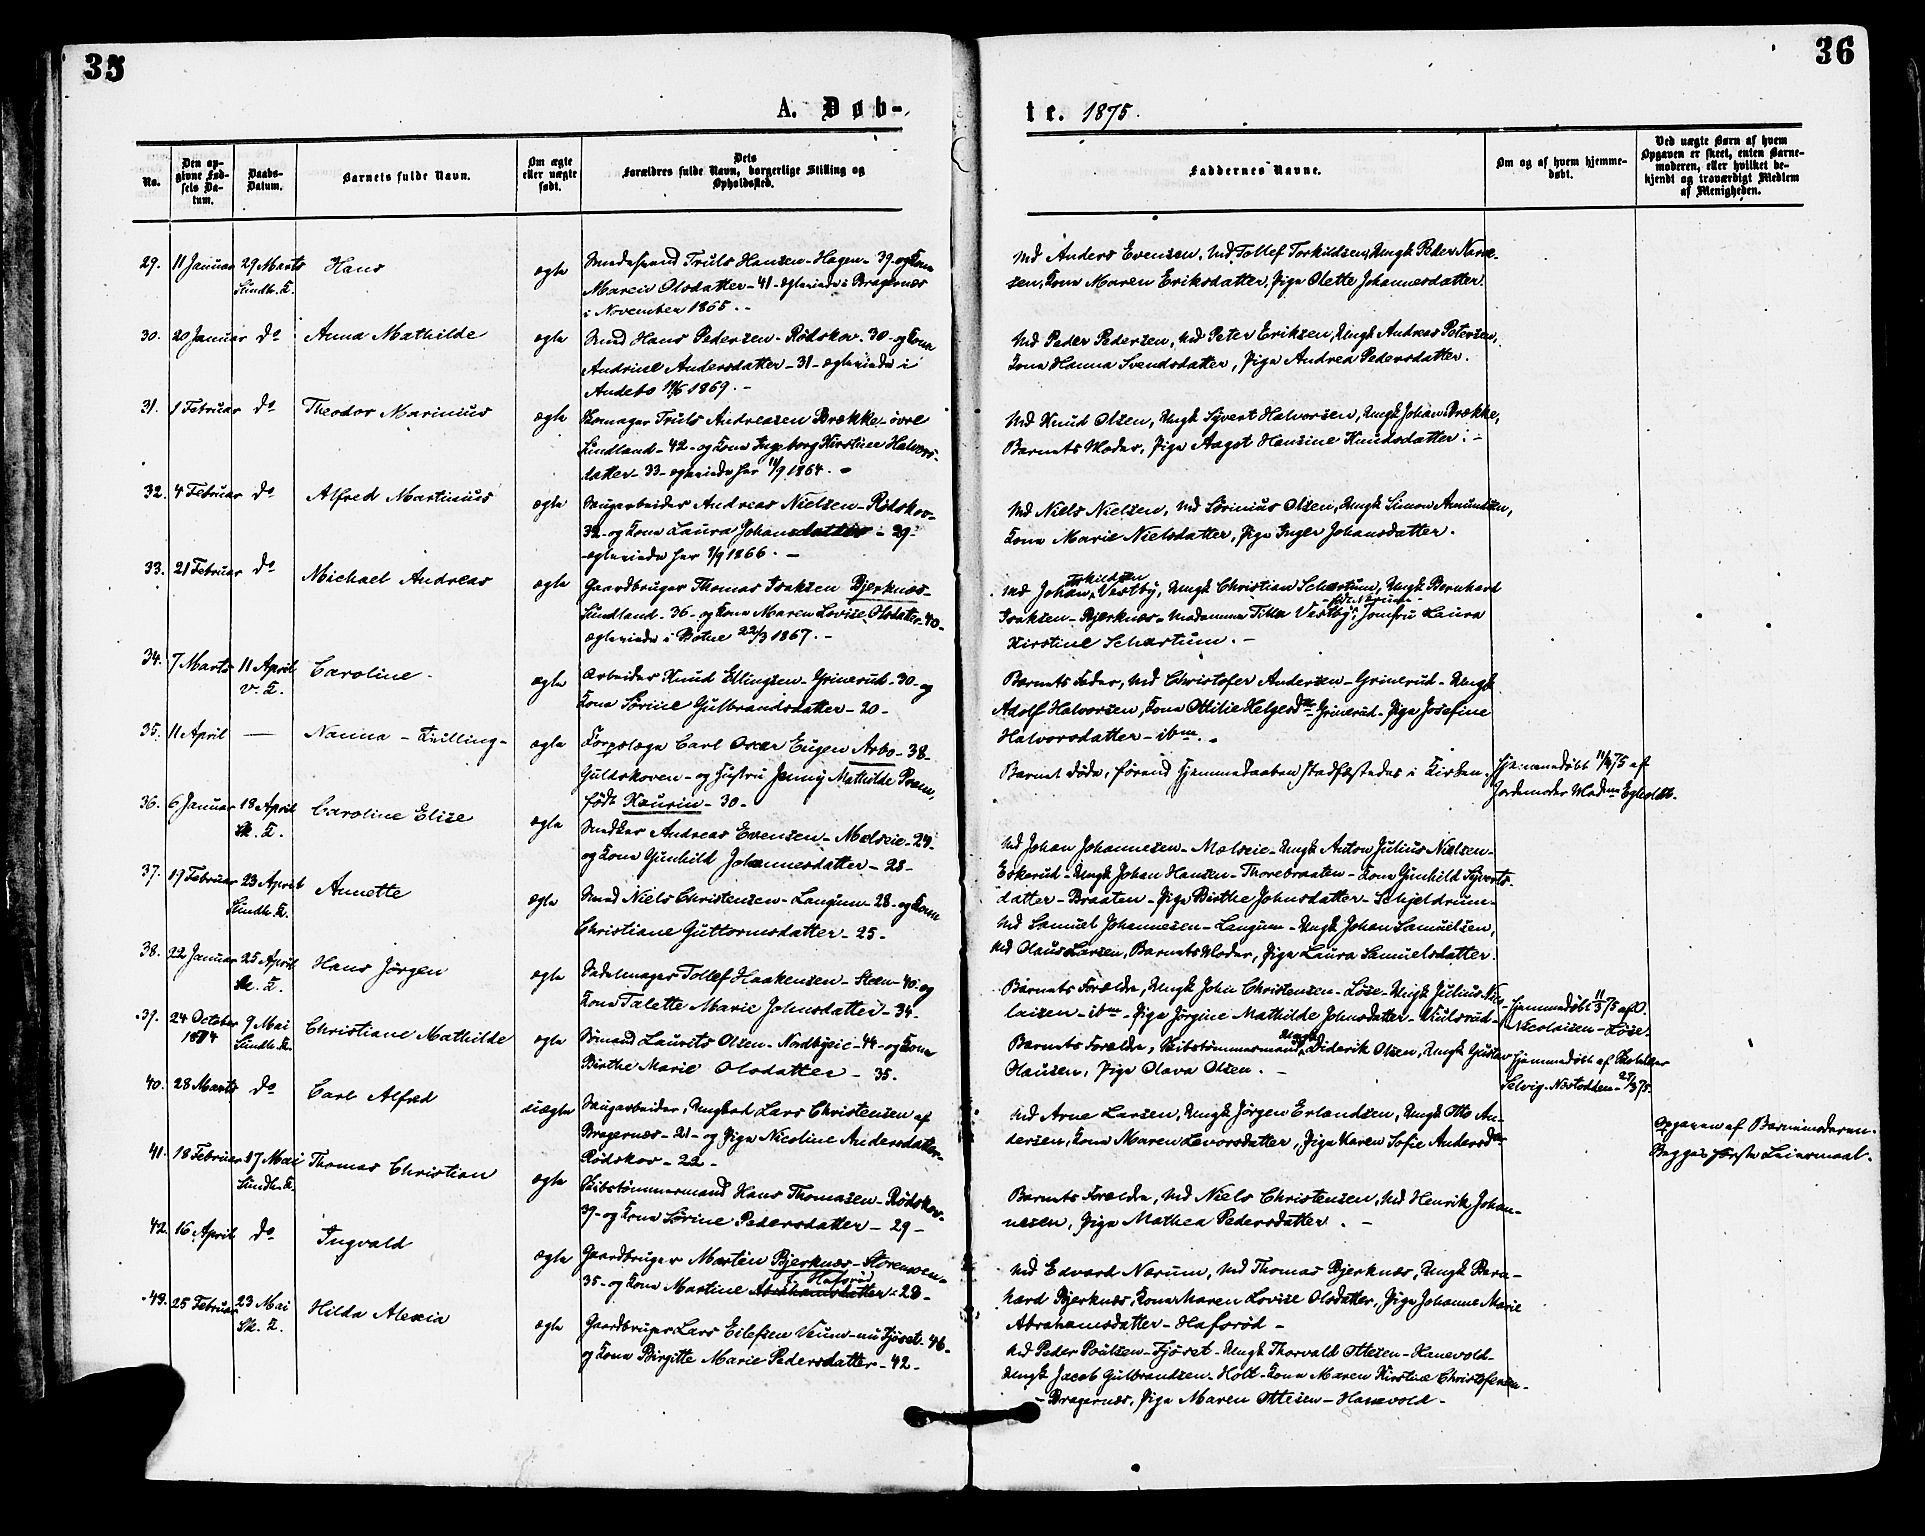 35
36
A. Døb-
te. 1875.
No.
Den op-
givne Fød-
sels Da-
tum.
Daabs-
Datum.
Barnets fulde Navn.
Om ægte
eller uægte
født.
Dets
Forældres fulde Navn, borgerlige Stilling og
Opholdssted.
Faddernes Navne.
Om og af hvem hjemme-
døbt.
Ved uægte Børn af hvem
Opgaven er skeet, enten Barne-
moderen, eller hvilket be-
kjendt og troværdigt Medlem
af Menigheden.
29. 11 Januar 29 Marts Hans ægte
Sundh. K.
Truls Hansen - Hagen - 39 - og Kone
Maren Olsdatter - 41 - ægteviede i Bragernæs
i November 1865. -
Md Anders Evensen, Md Tollef Torkildsen, Ungk Peder Narve-
sen, Kone Maren Eriksdatter, Pige Olette Johannesdatter.
30. 20 Januar do Anna Mathilde ægte
Smed Hans Pedersen - Rødskov - 30 - og Kone
Andrine Andersdatter - 31 - ægteviede i
Andebo 1869. -
Md Peder Pedersen, Md Peter Eriksen, Ungk Andreas Petersen,
Kone Hanna Svendsdatter, Pige Andrea Pedersdatter.
31. 1 Februar do Theodor Marinius ægte
Skomager Truls Andreasen Brække - øvre
Sundland - 42 - og Kone Ingeborg Kirstine Halvors-
datter - 33 - ægteviede her 11/9 1864. -
Md Knud Olsen, Ungk Syvert Halvorsen, Ungk Johan Brække,
Barnets Moder, Pige Aagot Hansine Knudsdatter. -
32. 4 Februar do Alfred Martinius ægte
Saugarbeider Andreas Nielsen - Rødskov -
32 - og Kone Laura Johansdatter - 29 -
ægteviede her 1/9 1866. -
Md Niels Nielsen, Md Sørinius Olsen, Ungk Simon Amundsen,
Kone Marie Nielsdatter, Pige Inger Johansdatter.
33. 21 Februar do Michael Andreas ægte
Gaardbruger Thomas Isaksen Bjerknæs -
Sundland - 36 - og Kone Maren Lovise Olsdatter - 40 -
ægteviede i Botne 22/3 1867. -
Torkildsen
Md Johan Vestby, Ungk Christian Schartum, Ungk Bernhard
Isaksen - Bjerknæs - Madamme Tilla Vestby, Jomfru Laura
Kirstine Schartum. -
34. 7 Marts 11 April Caroline - ægte
v. K.
Arbeider Knud Ellingsen - Grinerud - 30 - og
Kone Sørine Gulbrandsdatter - 20 -
Barnets Fader, Md Christofer Andersen - Grinerud - Ungk
Adolf Halvorsen, Kone Ottilie Helgesdtr - Grinerud - Pige Josefine
Halvorsdatter - ibm. -
35. 11 April — Nanna - Tvilling - ægte
Korpslæge Carl Oscar Eugen Arbo - 38 -
Guldskoven - og Hustru Jenny Mathilde
født Kaurin - 30 -
Barnet døde, førend Hjemmedaaben stadfæstedes i Kirken.
Hjemmedøbt 11/4 75 af
Jordemoder
36. 6 Januar 18 April Caroline Elise ægte
Sk. K.
Snedker Andreas Evensen - Mælseie - 24 -
og Kone Gunhild Johannesdatter - 28 -
Md Johan Johannesen - Mælseie - Ungk Anton Julius Nielsen -
Eskerud - Ungk Johan Hansen - Thorebraaten - Kone Gunhild Syverts-
datter - Braaten - Pige Birthe Johnsdatter - Schjeldrum -
37. 19 Februar 23 April Annette ægte
Sundh. K.
Smed Niels Christensen - Langum - 28 - og Kone
Christiane Guttormsdatter - 25 -
Md Samuel Johannesen - Langum - Ungk Johan Samuelsen,
Md Olaus Larsen, Barnets Moder, Pige Laura Samuelsdatter.
38. 22 Januar 25 April Hans Jørgen ægte
Sk. K.
Sadelmager Tollef Haakensen - Steen - 40 - og
Kone Talette Marie Johnsdatter - 34 -
Barnets Forældre, Ungk John Christensen - Løse - Ungk Julius Nico-
laisen - ibm - Pige Jørgine Mathilde Johnsdatter -
Hjemmedøbt 11/3 75 af O.
Nicolaisen - Løse.
39. 24 October 9 Mai Christiane Mathilde ægte
1874 Sundh. K.
Sømand Laurits Olsen - Nordbyeie - 44 - og Kone
Birthe Marie Olsdatter - 35.
Barnets Forældre, Skibstømmermand Diderik Olsen, Ungk Gustav
Olausen, Pige Olava Olsen. -
Hjemmedøbt af
Selvig - Nøstodden - 27/3 75.
40. 28 Marts do Carl Alfred uægte
Saugarbeider, Ungkarl Lars Christensen af
Bragernæs - 21 - og Pige Nicoline Andersdatter -
Rødskov - 22 -
Md Arne Larsen, Ungk Jørgen Erlandsen, Ungk Otto An-
dersen, Kone Maren Levorsdatter, Pige Karen Sofie Andersdtr
Opgaven af Barnemoderen.
Begges første Leiermaal.
41. 18 Februar 17 Mai Thomas Christian ægte
Sundh. K.
Skibstømmermand Hans Thomasen - Rødskov -
39 - og Kone Sørine Pedersdatter - 29 -
Barnets Forældre, Md Niels Christensen, Md Henrik Johan-
nesen, Pige Mathea Pedersdatter. -
42. 16 April do Ingvald ægte
Gaardbruger Martin Bjerknæs - Storemoen -
f. Haforød
35 - og Kone Martine Abrahamsdatter - 28 -
Md Edvard Narum, Md Thomas Bjerknæs, Ungk Bern-
hard Bjerknæs, Kone Maren Lovise Olsdatter, Pige Johanne Marie
Abrahamsdatter - Haforød -
43. 25 Februar 23 Mai Hilda Alexia ægte
Sk. K.
Gaardbruger Lars Eilefsen Veum - nu Fjøset - 46 -
og Kone Birgitte Marie Pedersdatter - 42 -
Md Peder Poulsen - Fjøset - Ungk Thorvald Ottesen - Hanevold -
Ungk Jacob Gulbrandsen - Holt - Kone Maren Kirstine Christofersen -
- Bragernæs, Pige Maren Ottesen - Hanevold -